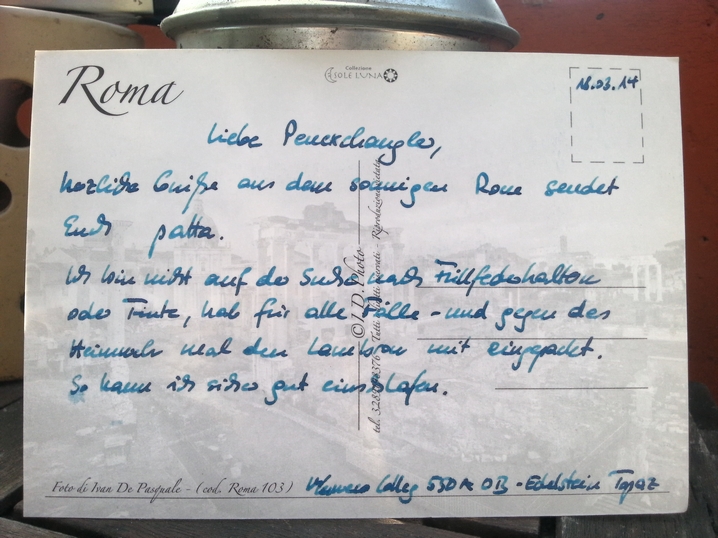 Roma
Collezione
SOLE LUNA
18.03.14
Liebe Penexchangler,
herzliche Grüße aus dem sonnigen Rom sendet
Euch patta.
Ich bin nicht auf der Suche nach Füllfederhaltern
oder Tinte, hab für alle Fälle - und gegen das
Heimweh mal den Lambrou mit eingepackt.
So kann ich sicher gut einschlafen.
© I.D. Photo
Tutti i diritti riservati - Riproduzione vietata
Foto di Ivan De Pasquale - (cod. Roma 103)
550 OB - Edelstein Topaz